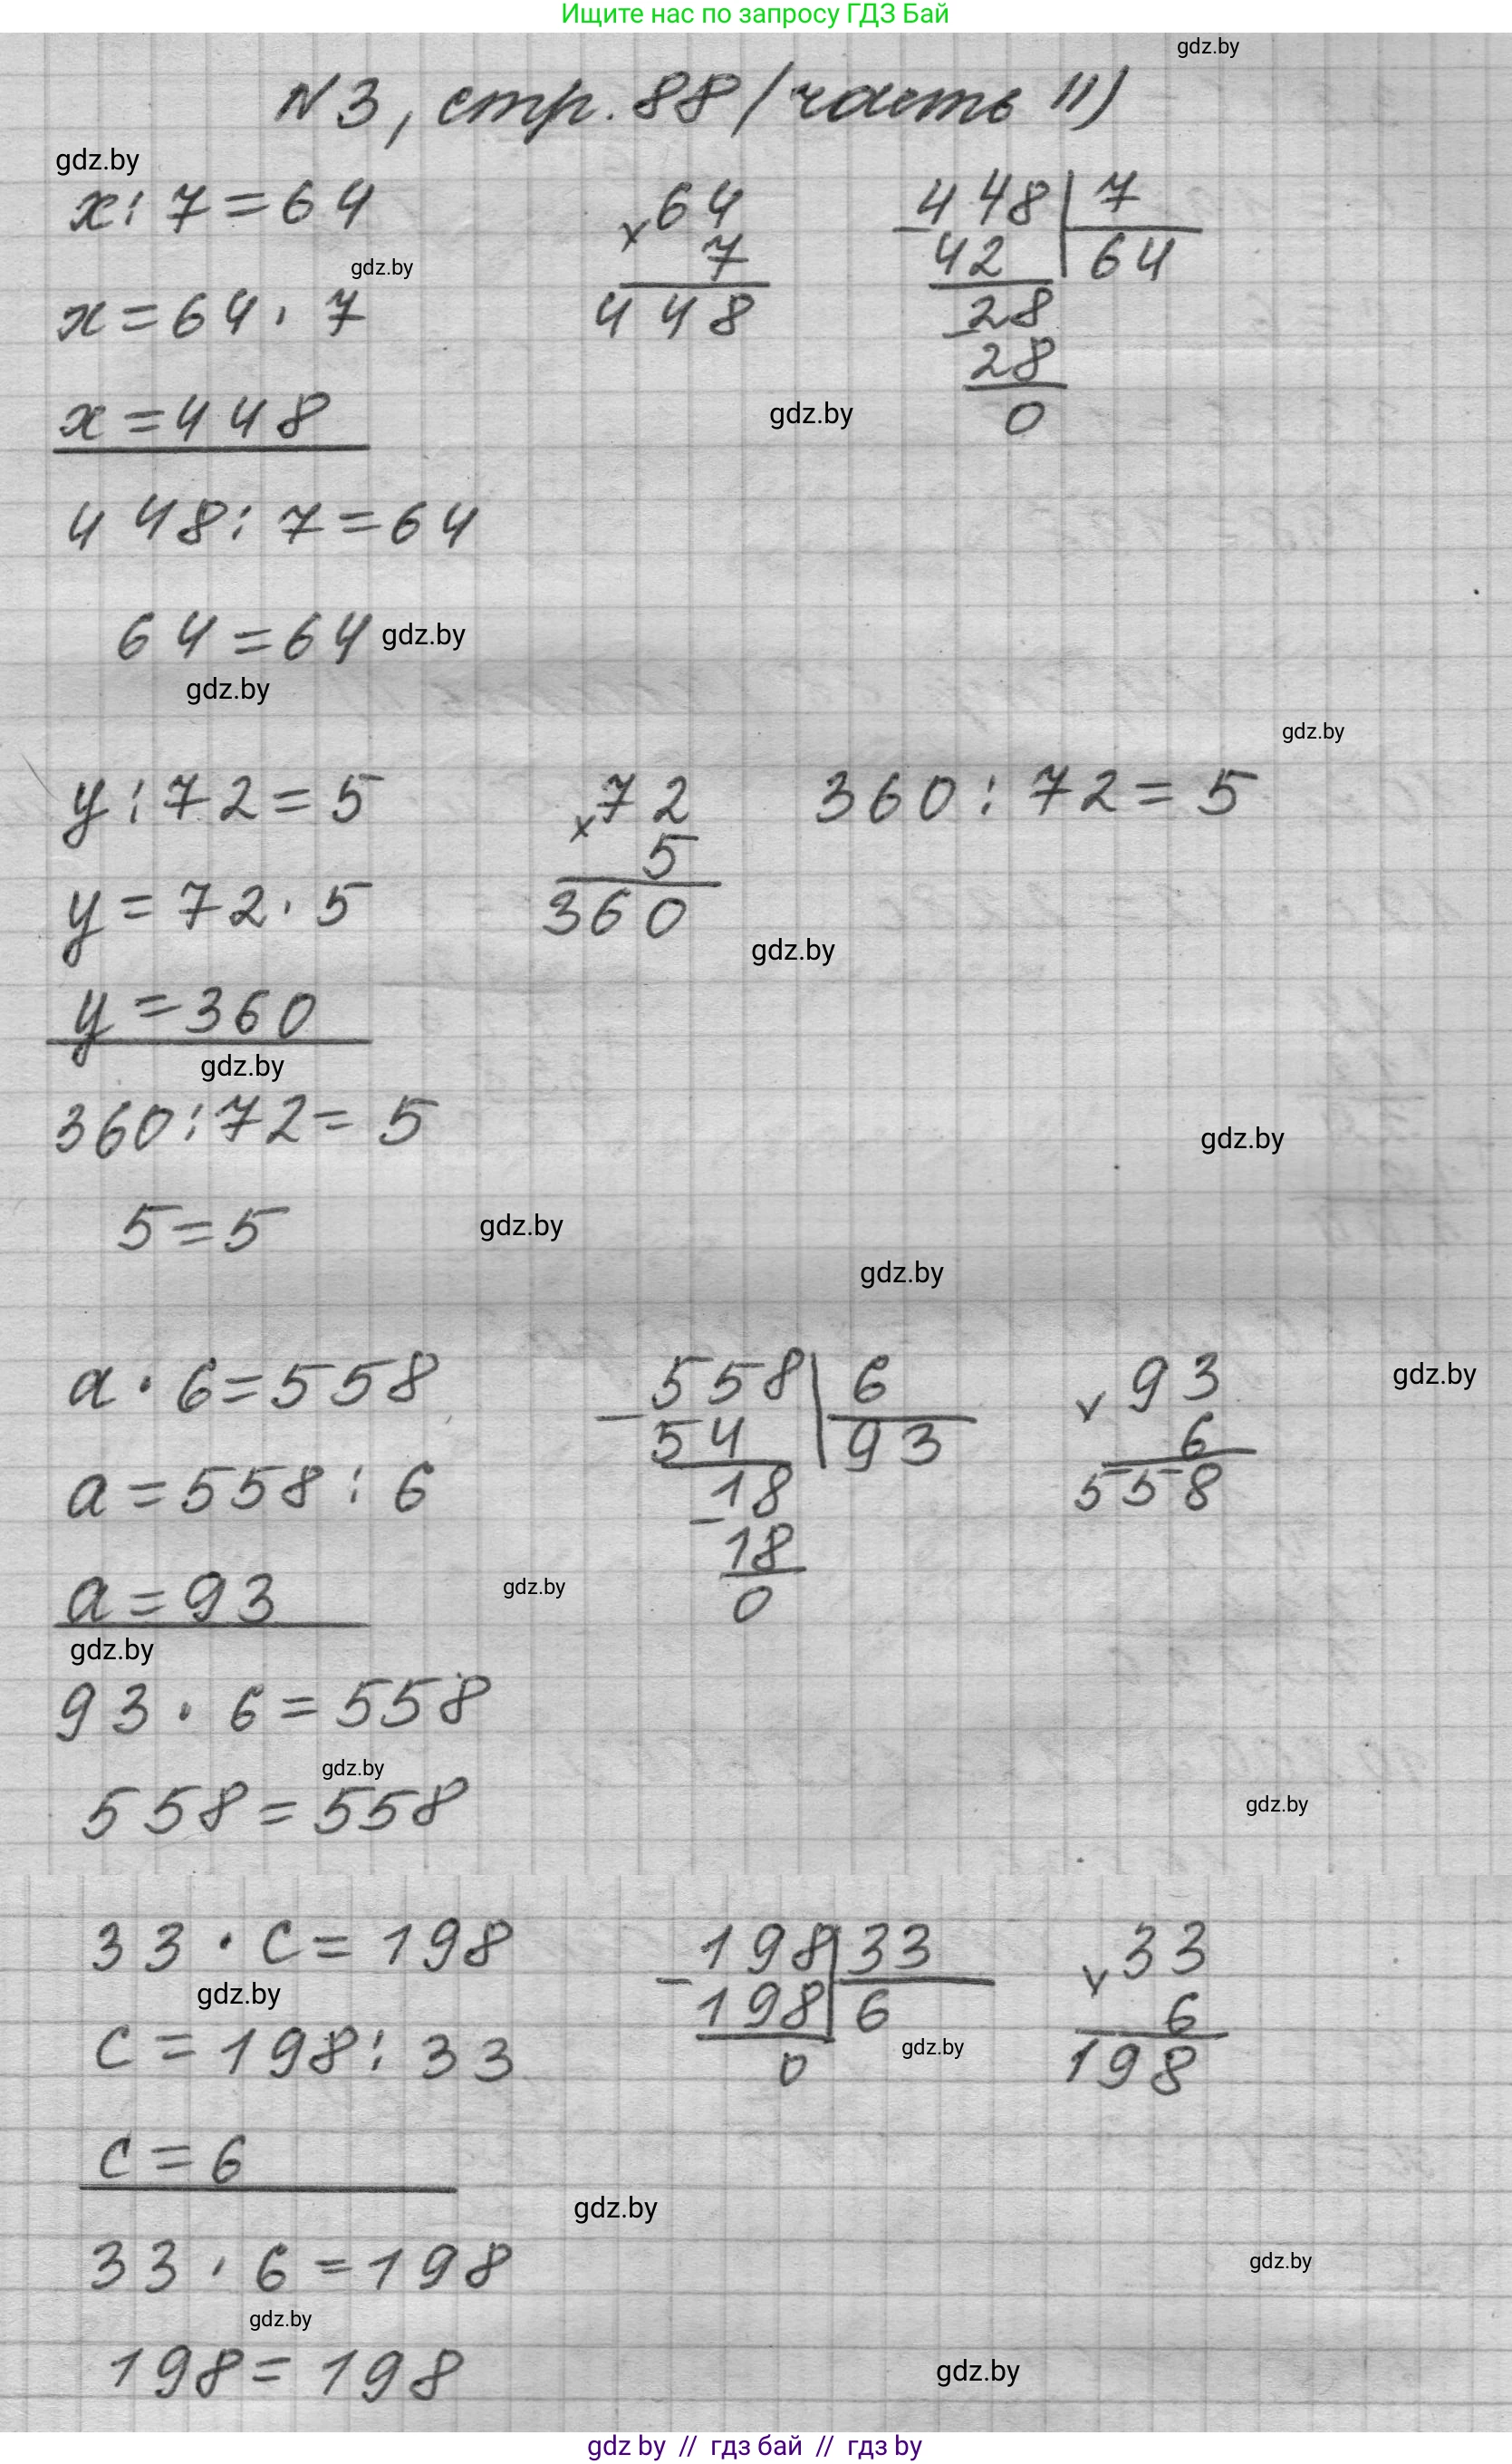 Ищите нас по запросу ГДЗ Бай
gdz.by
N3, стр. 88 (часть II)
gdz.by
x : 7 = 64
gdz.by
x = 64 · 7
x = 448
448 : 7 = 64
64 = 64
gdz.by
gdz.by
× 64
7
448
- 448 | 7
42 | 64
- 28
28
0
gdz.by
gdz.by
y : 72 = 5
y = 72 · 5
y = 360
gdz.by
360 : 72 = 5
5 = 5
× 72
5
360
360 : 72 = 5
gdz.by
gdz.by
gdz.by
gdz.by
a · 6 = 558
a = 558 : 6
a = 93
gdz.by
93 · 6 = 558
gdz.by
558 = 558
- 558 | 6
54 | 93
- 18
18
0
gdz.by
× 93
6
558
gdz.by
gdz.by
33 · c = 198
gdz.by
c = 198 : 33
c = 6
33 · 6 = 198
gdz.by
198 = 198
- 198 | 33
198 | 6
0
gdz.by
× 33
6
198
gdz.by
gdz.by
gdz.by
gdz by // гдз бай // гдз by